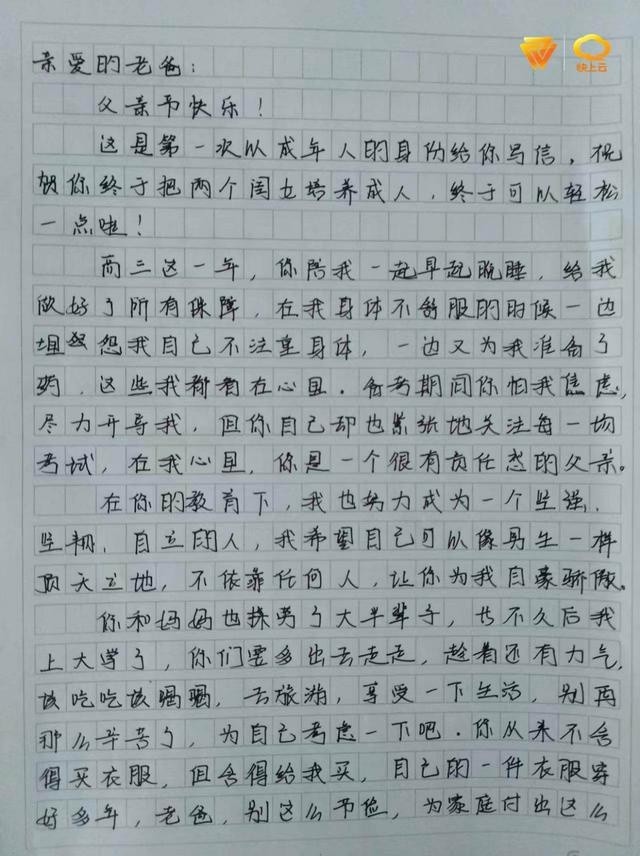 快上云
亲爱的老爸：
父亲节快乐！
这是第一次以成年人的身份给你写信，祝
贺你终于把两个闺女培养成人，终于可以轻松
一点啦！
高三这一年，你陪我一起早起晚睡，给我
做好了所有保障，在我身体不舒服的时候一边
埋怨我自己不注重身体，一边又为我准备了
药，这些我都看在心里。备考期间你怕我焦虑，
尽力开导我，但你自己却也紧张地关注每一场
考试，在我心里，你是一个很有责任感的父亲。
在你的教育下，我也努力成为一个坚强、
坚韧、自立的人，我希望自己可以像男生一样
顶天立地，不依靠任何人，让你为我自豪骄傲。
你和妈妈也操劳了大半辈子，等不久后我
上大学了，你们要多出去走走，趁着还有力气，
该吃吃该喝喝，去旅游，享受一下生活，别再
那么辛苦了，为自己考虑一下吧。你从来不舍
得买衣服，但舍得给我买，自己的一件衣服穿
好多年，老爸，别这么节俭，为家庭付出这么